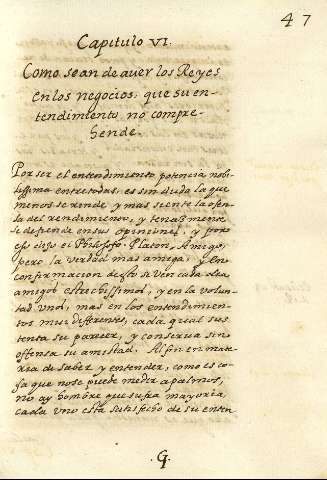 47
Capitulo VI.
Como se an de aver los Reyes
en los negocios, que su en-
tendimiento no compre-
hende.
Por ser el entendimiento potencia nobi-
lissima entre todas, es sin duda la que
menos se rinde, y mas siente la ofen-
sa del rendimiento, y tenaz mente
se defiende en sus opiniones, y por
eso dijo el Philosofo Platon, Amigo,
pero la verdad mas amiga, y en
confirmacion de esto se ven cada dia
amigos estrechissimos, y en la volun-
tad unos, mas en los entendimien-
tos muy differentes, cada qual sus
tenta su parecer, y conserva sin
offensa su amistad. Al fin en mate-
ria de saber y entender, como es co-
sa que no se puede medir a palmos,
no ay hombre que sufra mayoria
cada uno esta satisfecho de su enten
G